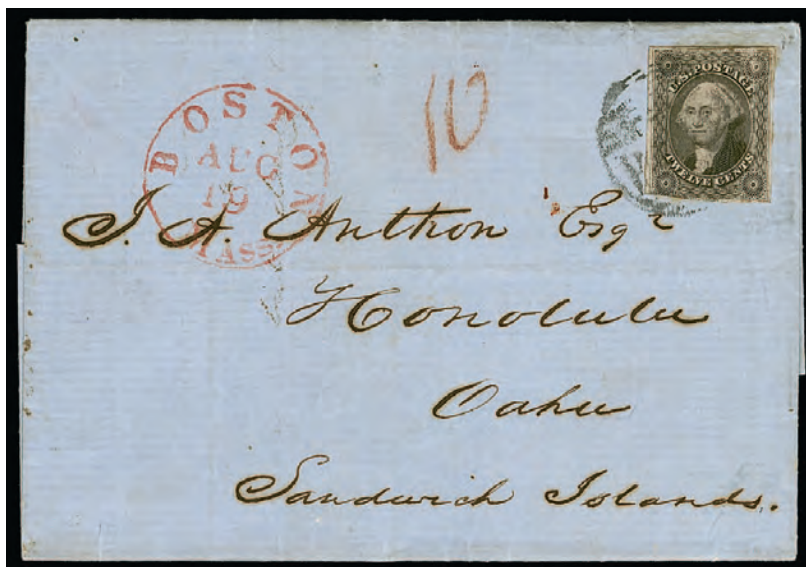 BOSTON
AUG
19
MASS
10
U.S. POSTAGE
TWELVE CENTS
J. A. Anthon Esqr
Honolulu
Oahu
Sandwich Islands.